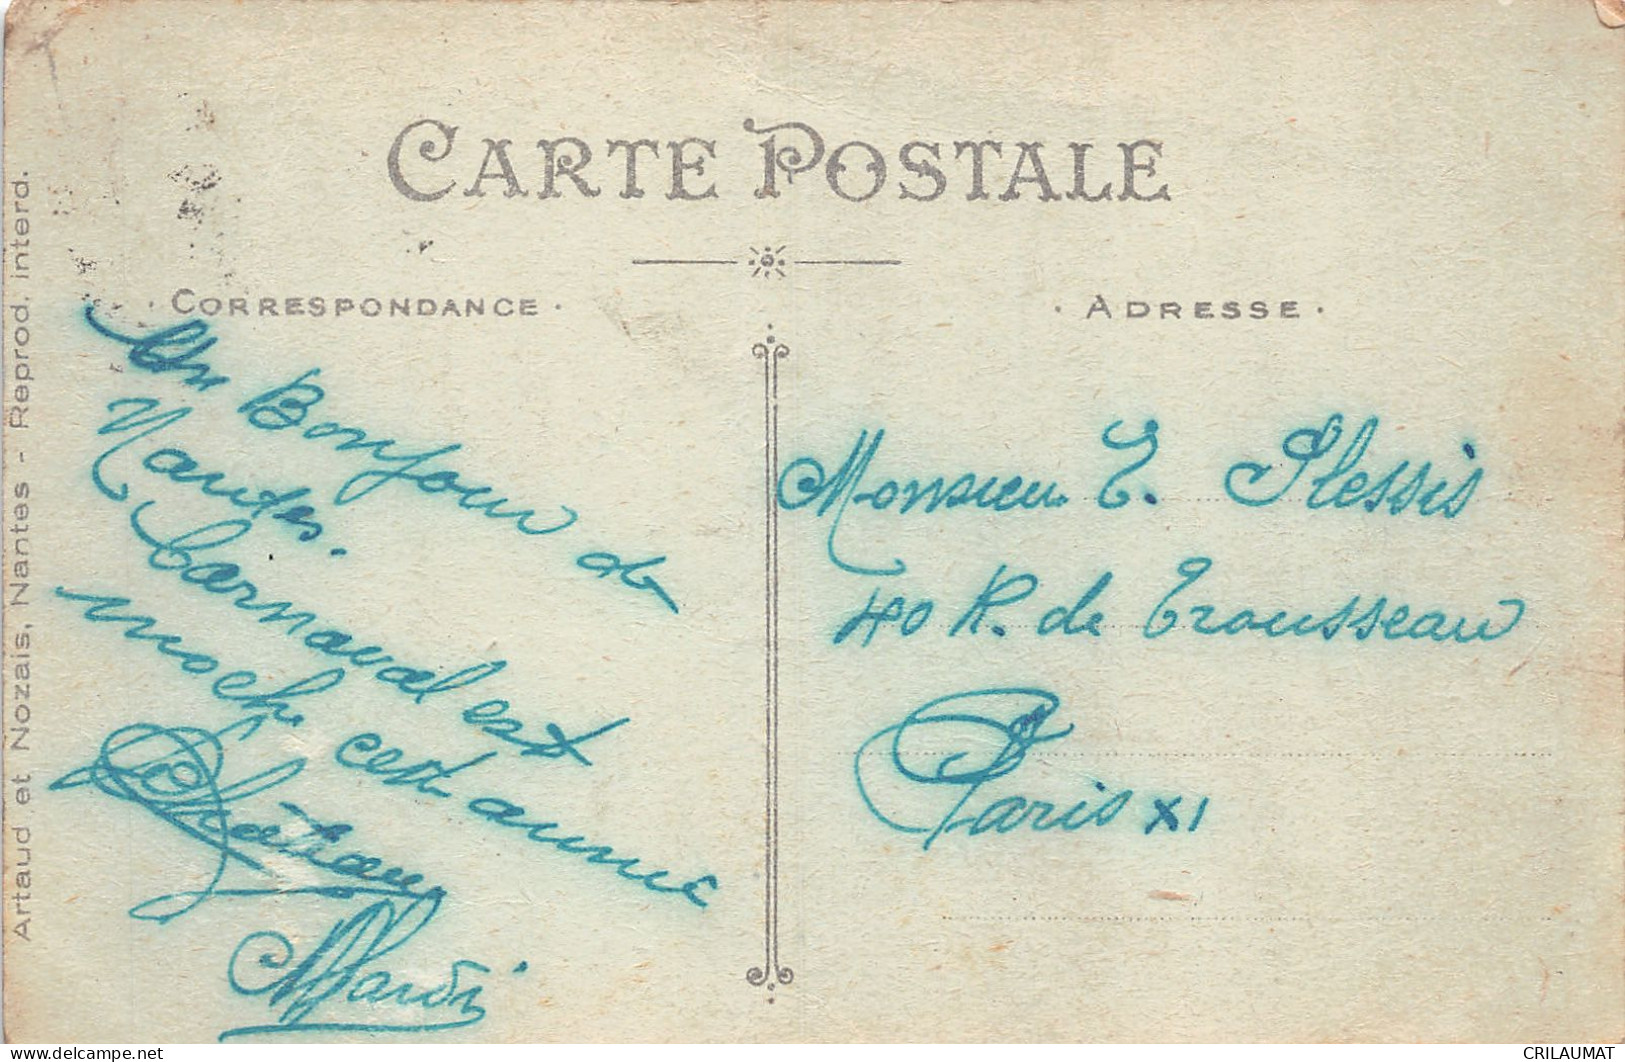 CARTE POSTALE
· CORRESPONDANCE ·
· ADRESSE ·
Un Bonjour de
Nantes.
Carnaval est
moche cette année
Château
Mardi
Monsieur E. Plessis
40 R. de Trousseau
Paris XI
Artaud et Nozais, Nantes - Reprod. interd.
www.delcampe.net
CRILAUMAT